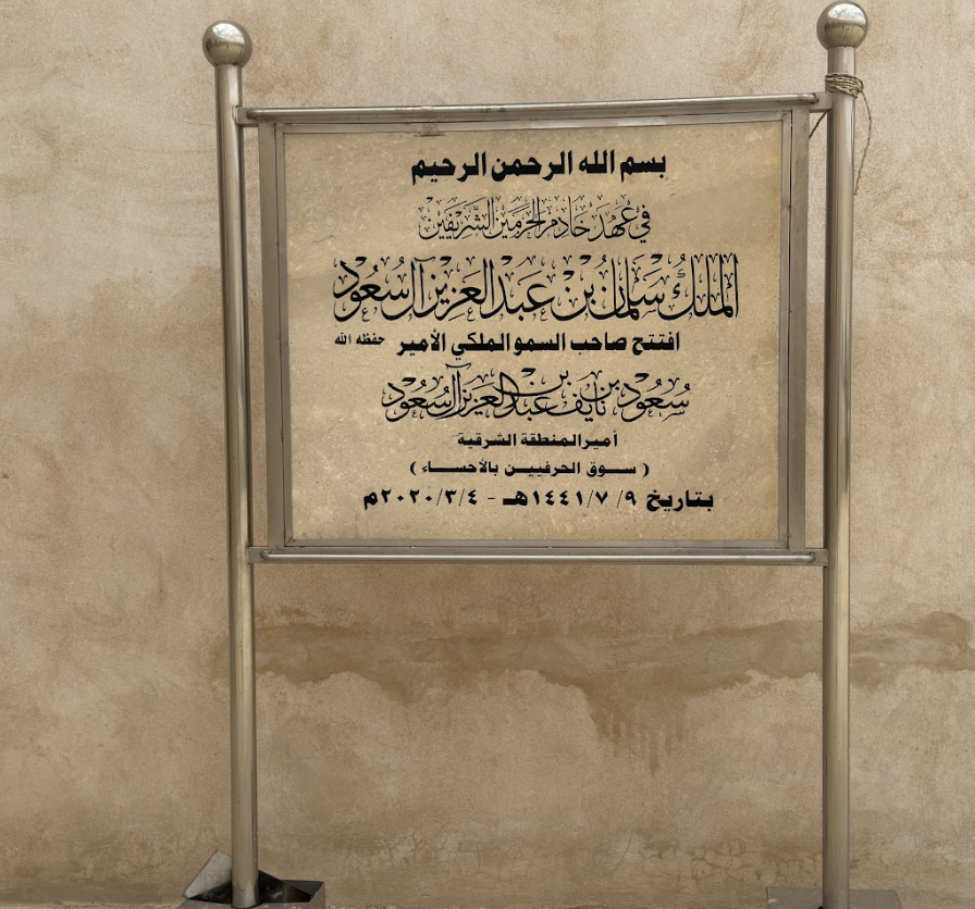 بسم الله الرحمن الرحيم
في عهد خادم الحرمين الشريفين
الملك سلمان بن عبدالعزيز آل سعود
افتتح صاحب السمو الملكي الأمير حفظه الله
سعود بن نايف بن عبدالعزيز آل سعود
أمير المنطقة الشرقية
( سوق الحرفيين بالأحساء )
بتاريخ ٩ /٧ /١٤٤١هـ - ٢٠٢٠/٣/٤م